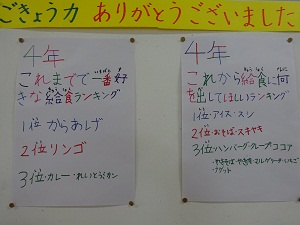 ごきょう力 ありがとうございました
4年
これまでで一番好
きな給食ランキング
1位 からあげ
2位 リンゴ
3位・カレー・れいとうミカン
4年
これから給食に何
を出してほしいランキング
1位・アイス・スシ
2位・おそば・スキヤキ
3位・ハンバーグ・クレープ・ココア